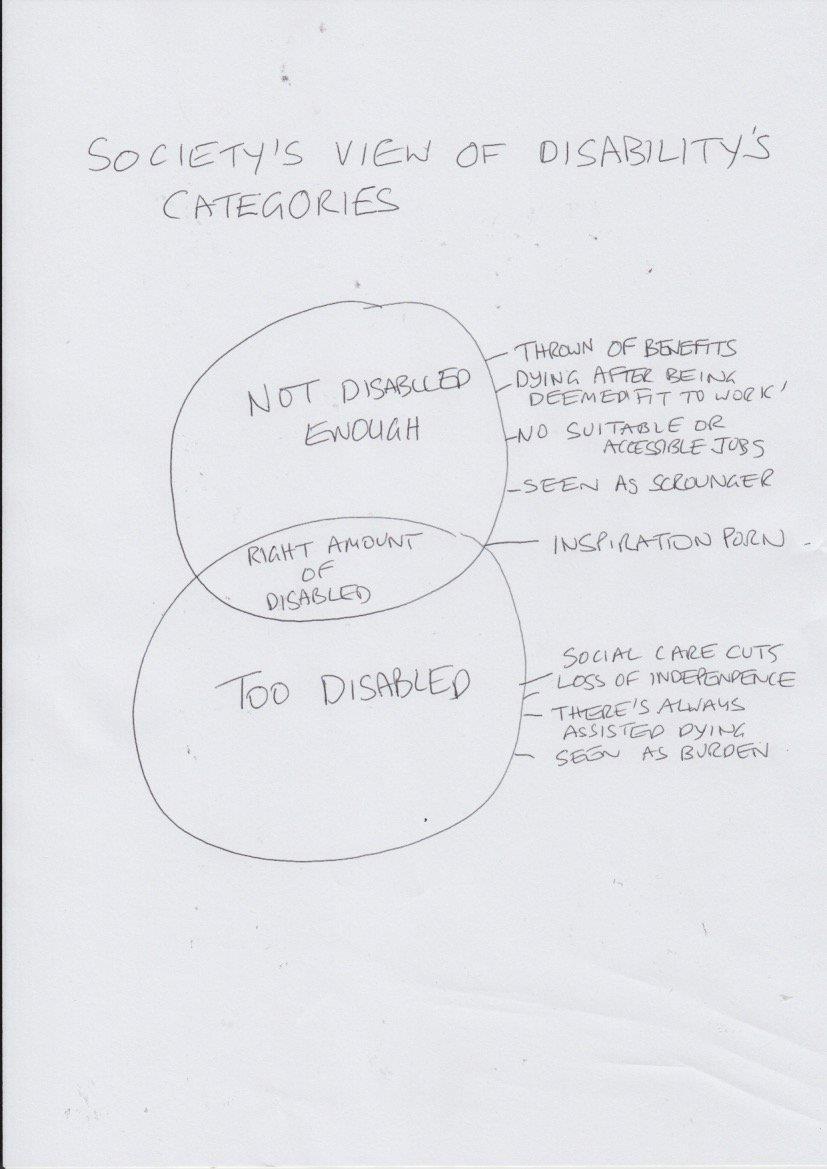 SOCIETY'S VIEW OF DISABILITY'S
CATEGORIES
NOT DISABLLED
ENOUGH
THROWN OF BENEFITS
DYING AFTER BEING
DEEMED FIT TO WORK'
NO SUITABLE OR
ACCESSIBLE JOBS
SEEN AS SCROUNGER
RIGHT AMOUNT
OF
DISABLED
INSPIRATION PORN
TOO DISABLED
SOCIAL CARE CUTS
LOSS OF INDEPENDENCE
THERE'S ALWAYS
ASSISTED DYING
SEEN AS BURDEN